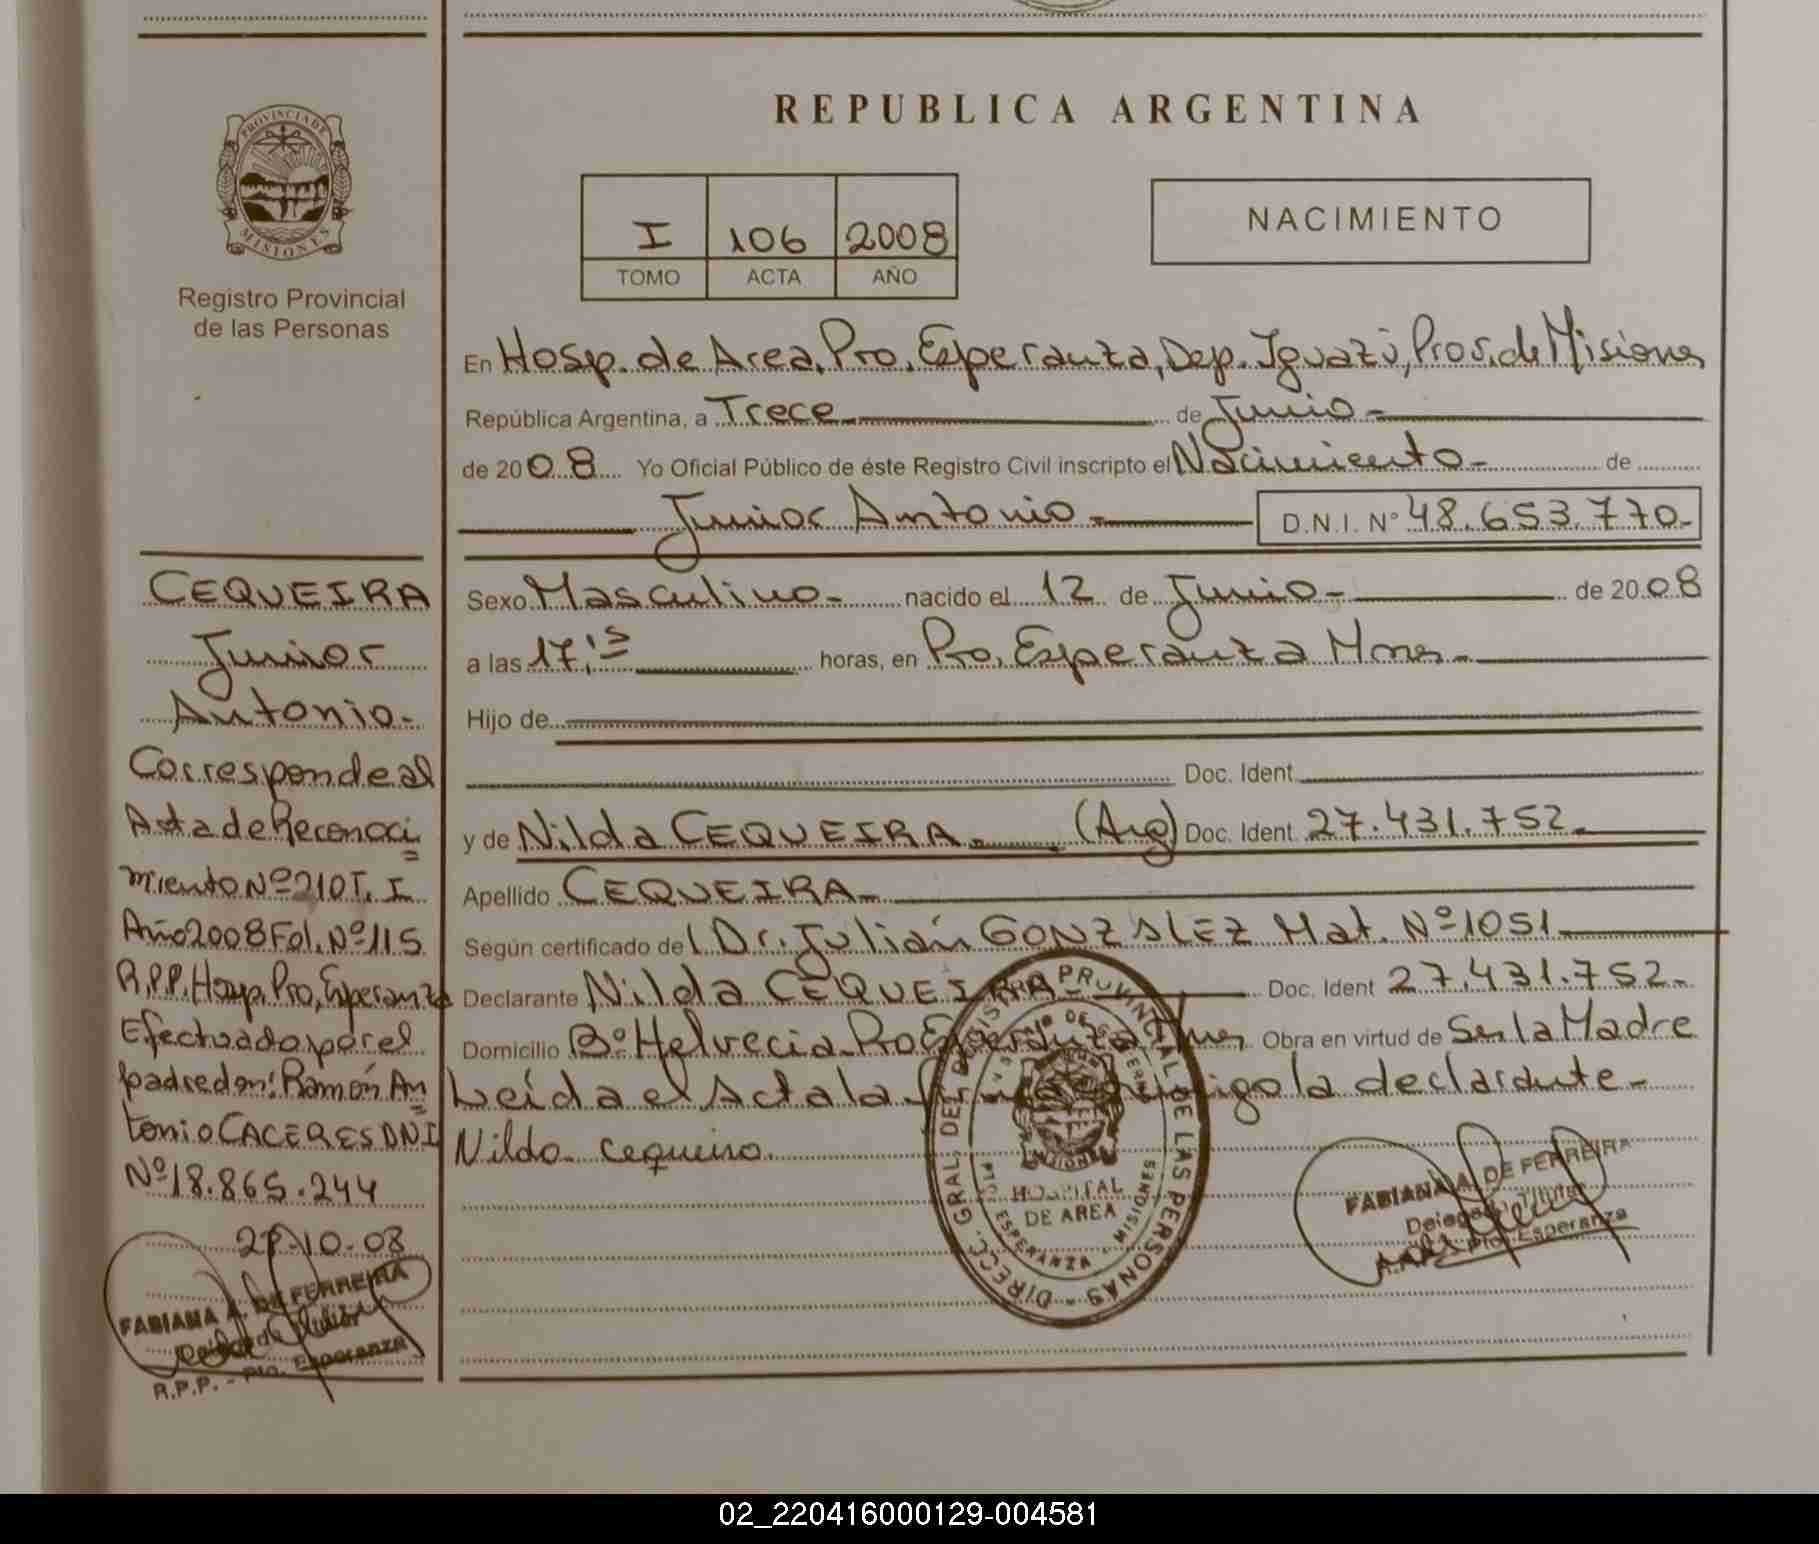 PROVINCIA DE
MISIONES
Registro Provincial
de las Personas
REPUBLICA ARGENTINA
I 106 2008
TOMO ACTA AÑO
NACIMIENTO
En Hosp. de Area, Pto. Esperanza, Dep. Iguazú, Prov. de Misiones
República Argentina, a Trece de Junio
de 2008 Yo Oficial Público de éste Registro Civil inscripto el Nacimiento de
Junior Antonio D.N.I. Nº 48.653.770
Sexo Masculino nacido el 12 de Junio de 2008
a las 17,15 horas, en Pto. Esperanza Mnes
Hijo de
Doc. Ident
y de Nilda CEQUEIRA (Arg) Doc. Ident 27.431.752
Apellido CEQUEIRA
Según certificado de Dr. Julián GONZALEZ Mat. Nº 1051
Declarante Nilda CEQUEIRA Doc. Ident 27.431.752
Domicilio Bº Helvecia Pto Esperanza Mnes Obra en virtud de Ser la Madre
Leída el Acta la firma conmigo la declarante
Nilda cequeira
CEQUEIRA
Junior
Antonio
Corresponde al
Acta de Reconoci
miento Nº 210 T. I
Año 2008 Fol. Nº 115
R.P.P. Hosp. Pto. Esperanza
Efectuado por el
padre don: Ramón An
tonio CACERES DNI
Nº 18.865.244
-10-08
FABIANA A. DE FERREIRA
Delegada Titular
R.P.P. - Pto. Esperanza
DIRECC. GRAL. DEL REGISTRO PROVINCIAL DE LAS PERSONAS
MISIONES
HOSPITAL
DE AREA
PTO. ESPERANZA - MISIONES
FABIANA A. DE FERREIRA
Delegada Titular
Pto. Esperanza
02_220416000129-004581